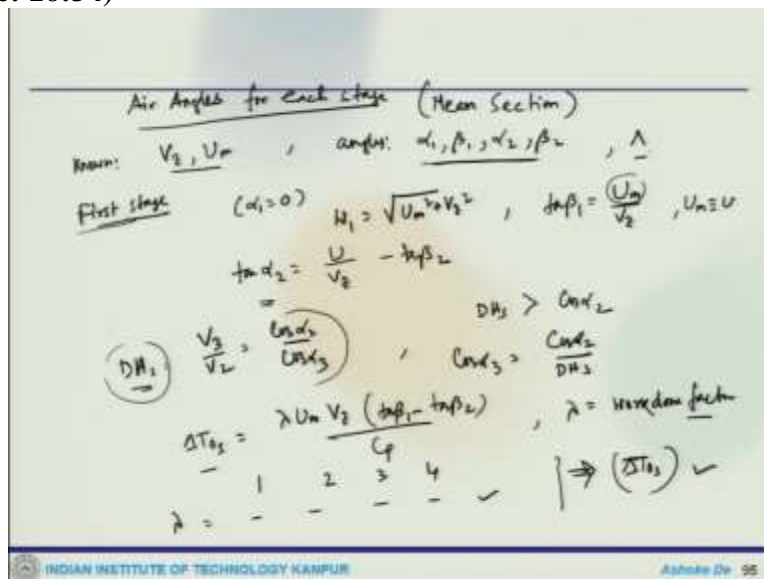 Air Angles for each stage (Mean Section)
Known: V_z, U_m , angles: α₁, β₁, α₂, β₂ , Λ
First stage (α₁=0) W₁ = √(U_m² + V_z²) , tanβ₁ = U_m/V_z , U_m ≡ U
tanα₂ = U/V_z - tanβ₂
DH_s > Cosα₂
DH_s V₃/V₂ = Cosα₂/Cosα₃ , Cosα₃ = Cosα₂/DH_s
ΔT₀s = λ U_m V_z (tanβ₁ - tanβ₂)/C_p , λ = workdone factor
1 2 3 4 } ⇒ (ΔT₀s) ✓
λ = - - - - ✓
INDIAN INSTITUTE OF TECHNOLOGY KANPUR
Ashoke De 95